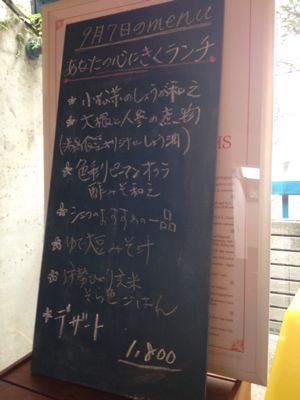 9月7日のmenu
あなたの心にきくランチ
* 小松菜のしょうが和え
* 大根と人参の煮物
* 色彩ピーマンナッツ
酢みそ和え
* シェフのおすすめの一品
* ゆで大豆みそ汁
* 伊勢ひかり玄米
そら色ごはん
* デザート
1,800